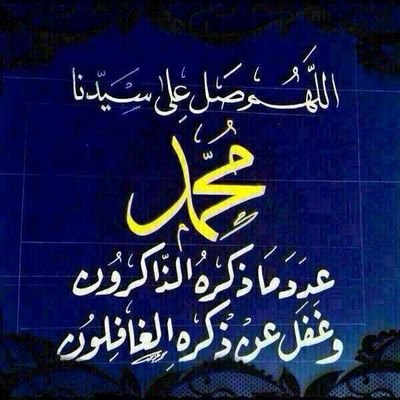 اللَّهُم صَل عِلى سَيِّدنا
مُحمَّد
عدَد مَا ذكرهُ الذَّاكرُون
وغَفَل عَنْ ذكره الِغافِلُون